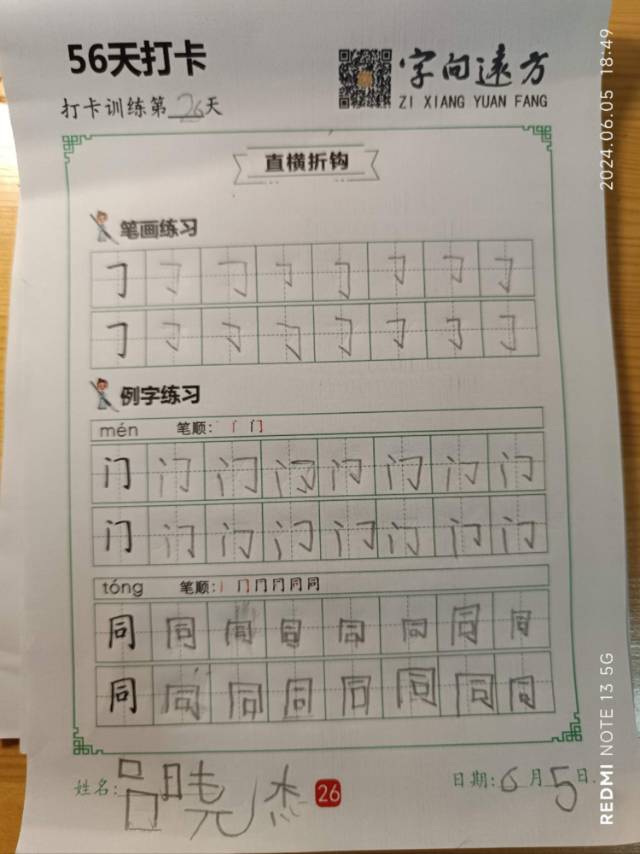 56天打卡
字向远方
ZI XIANG YUAN FANG
打卡训练第26天
直横折钩
笔画练习
𠃌 𠃌 𠃌 𠃌 𠃌 𠃌 𠃌 𠃌
𠃌 𠃌 𠃌 𠃌 𠃌 𠃌 𠃌 𠃌
例字练习
mén 笔顺: 门
门 门 门 门 门 门 门 门
门 门 门 门 门 门 门 门
tóng 笔顺: 丨 冂 同
同 同 同 同 同 同 同 同
同 同 同 同 同 同 同 同
姓名: 吕晓杰 26 日期: 6月5日.
2024.06.05 18:49
REDMI NOTE 13 5G